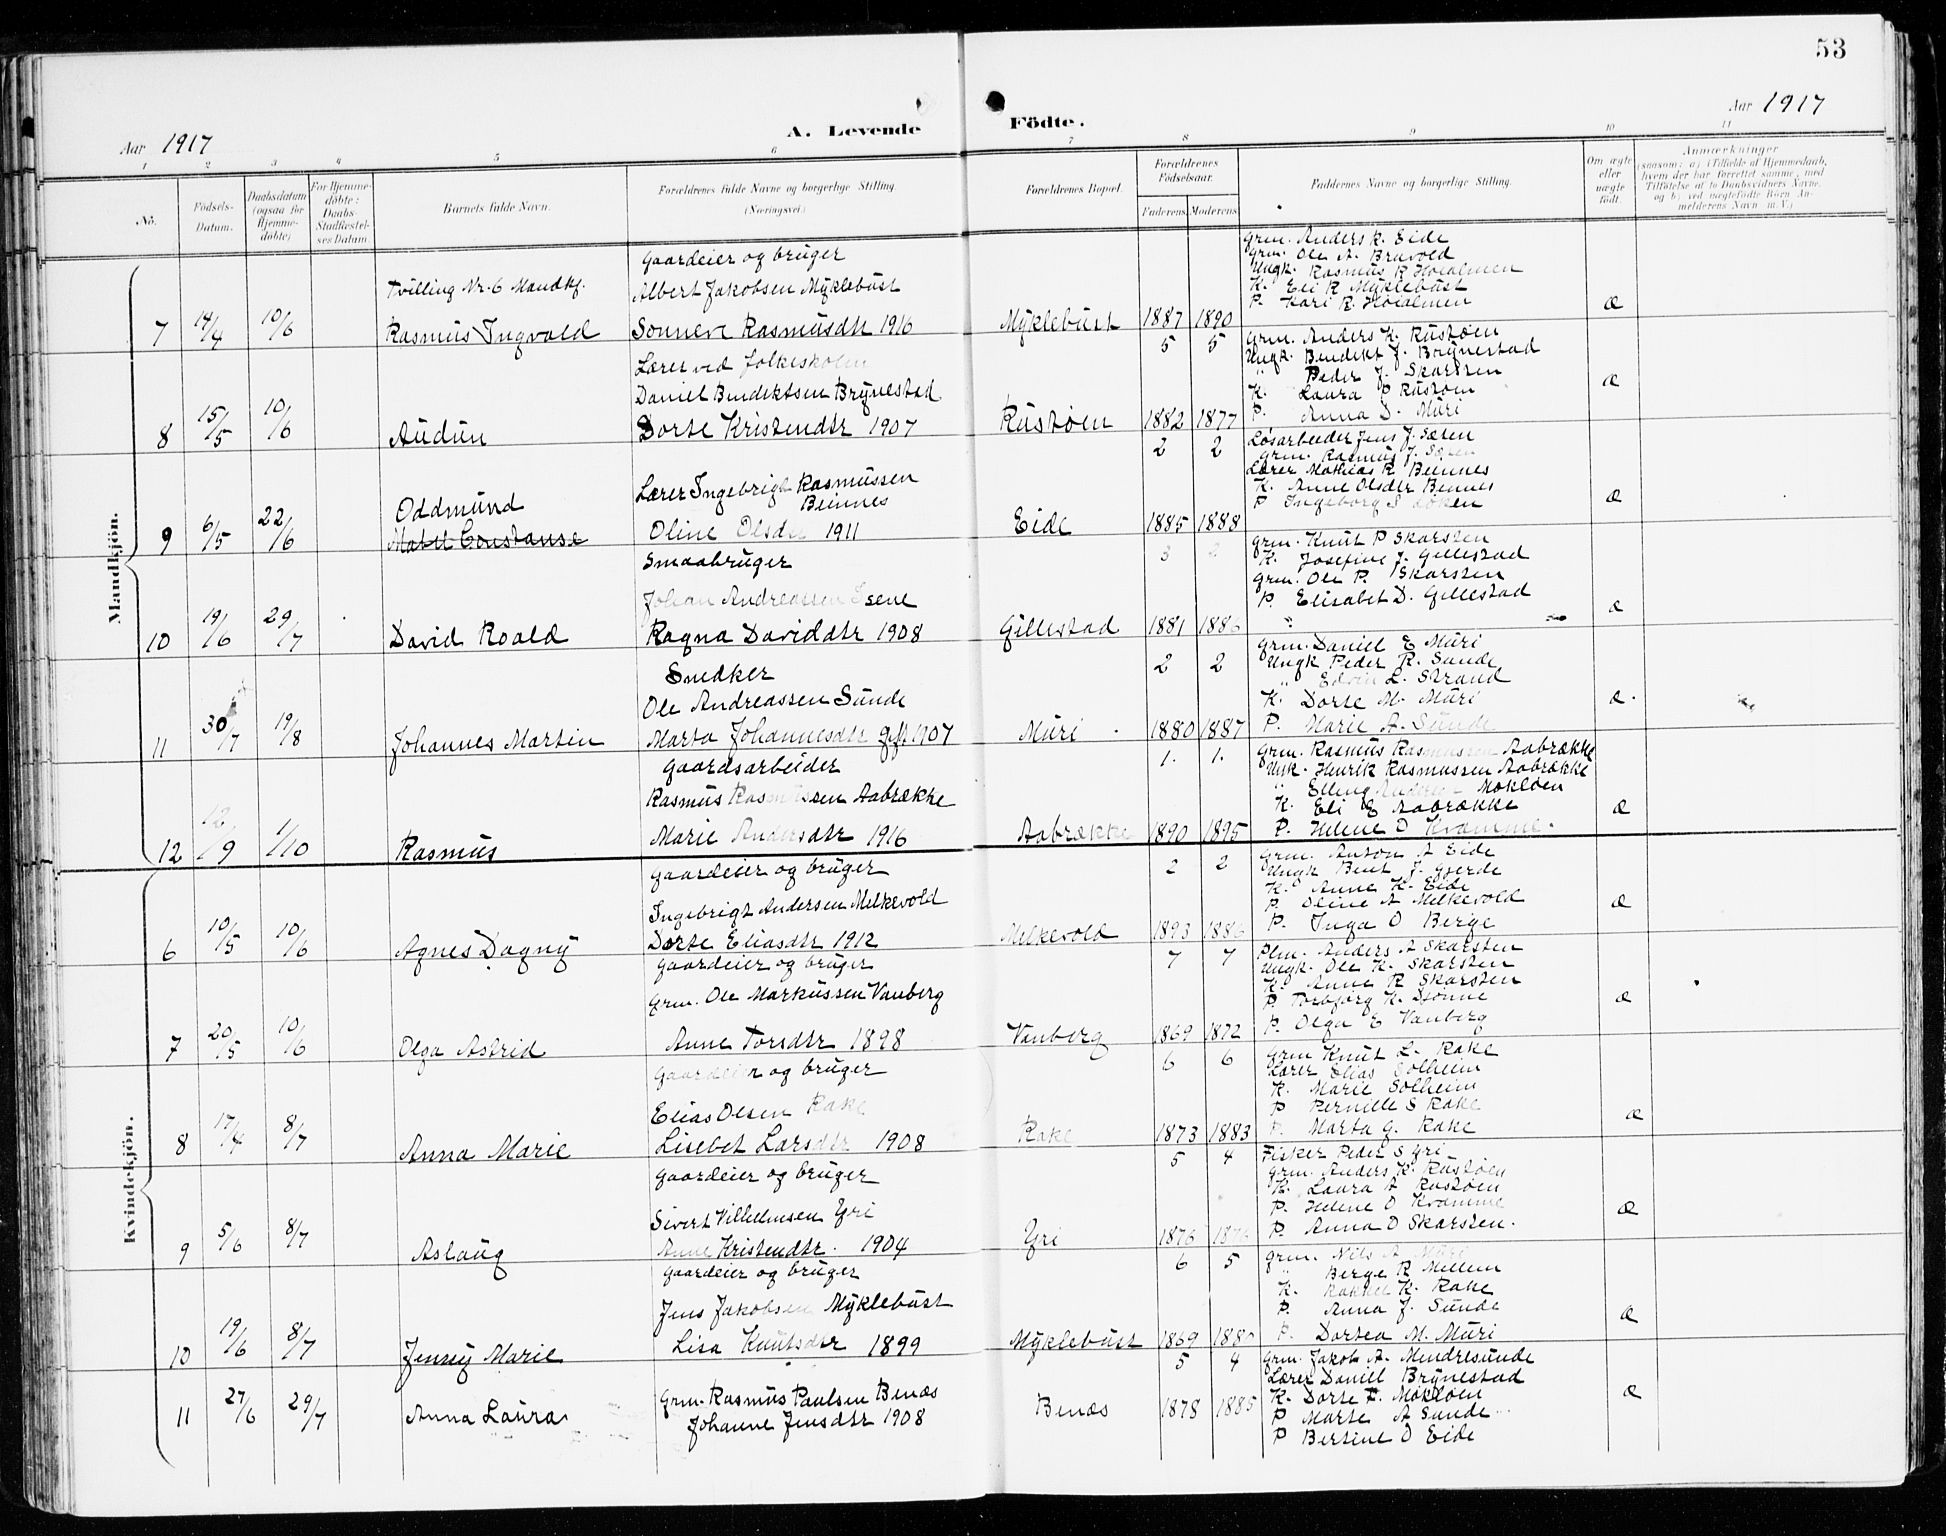 53
Aar 1917
A. Levende Födte.
Aar 1917
1 2 3 4 5 6 7 8 9 10 11
No.
Födsels-Datum.
Daabsdatum (ogsaa for Hjemme-döbte)
For Hjemme-döbte: Daabs-Stadfæstel-ses Datum
Barnets fulde Navn.
Forældrenes fulde Navne og borgerlige Stilling.
(Næringsvei.)
Forældrenes Bopæl.
Forældrenes Födselsaar.
Faderens Moderens
Faddernes Navne og borgerlige Stilling.
Om ægte eller uægte födt.
Anmærkninger
(saasom: a) i Tilfælde af Hjemmedaab, hvem der har forrettet samme, med Tilföielse af to Daabsvidners Navne, og b) ved uægtefödte Börn An-melderens Navn m. V.)
Mandkjön.
Gaardeier og bruger
Tvilling Nr. 6 Mandkj.
Albert Jakobsen Myklebust
7 14/4 10/6 Rasmus Ingvald Sonneve Rasmusdtr 1916 Myklebust 1887 1890 æ
5 5
Grm. Anders K. Eide
Grm. Ole A. Bruvold
Ungk. Rasmus R Hoialmen
K. Eli R Myklebust
P. Kari R. Hoialmen
Lærer ved folkeskolen
Daniel Bendiktsen Brynestad
8 15/5 10/6 Audun Dorte Kristendtr 1907 Rustøen 1882 1877 æ
2 2
Grm. Anders K. Rustøen
Ungk. Bendikt J. Brynestad
" Peder J. Skarsten
K. Laura P Rustøen
P. Anna D. Muri
Lærer Ingebrigt Rasmussen
Beinnes
Oddmund
9 6/5 22/6 Matil Constanse Oline Olsdtr 1911 Eide 1885 1888 æ
3
Løsarbeider Jens J. Sæten
Grm. Rasmus J.
Lærer Mathias R Beinnes
K. Anne Olsdtr Bennes
P Ingeborg S Løken
Smaabruger
Johan Andreassen Isene
10 19/6 29/7 David Roald Ragna Davidtr 1908 Gillestad 1881 1886 æ
2 2
Grm. Knut P Skarsten
K. Josefine J. Gillestad
Grm. Ole P. Skarsten
P. Elisabet D. Gillestad
"
Snedker
Ole Andreassen Sunde
11 30/7 19/8 Johannes Martin Marta Johannesdtr gift 1907 Muri 1880 1887 æ
1. 1.
Grm. Daniel E Muri
Ungk Peder R. Sunde
" Edvin L. Strand
K. Dorte M. Muri
P. Marie A. Sunde
Gaardsarbeider
Rasmus Rasmussen Aabrække
12 12/9 1/10 Rasmus Marie Andersdtr 1916 Aabrække 1890 1895 æ
2 2
Grm. Rasmus Rasmussen Aabrække
Ungk. Henrik Rasmussen Aabrække
" Elling Moklöen
K. Eli E Aabrække
P. Helene O Kvamme.
Kvindekjön.
Gaardeier og bruger
Ingebrigt Andersen Melkevold
6 10/5 10/6 Agnes Dagny Dorte Eliasdtr 1912 Melkevold 1893 1886 æ
7 7
Grm. Anton A Eide
Ungk Bent J. Gjerde
K. Anne K. Eide
P. Oline A Melkevold
P. Inga O Berge
Gaardeier og bruger
Grm. Ole Markussen Vanberg
7 20/5 10/6 Olga Astrid Anne Torsdtr 1898 Vanberg 1869 1872 æ
6 6
Plm. Anders A Skarsten
Ungk. Ole K. Skarsten
K. Anne R Skarsten
P Torbjørg K. Djönne
P. Olga E Vanberg
Gaardeier og bruger
Elias Olsen Rake
8 17/4 8/7 Anna Marie Lisebet Larsdtr 1908 Rake 1873 1883 æ
5 4
Grm Knut L. Rake
Lærer Elias Solheim
K. Marie Solheim
P Pernille S Rake
P. Marta G. Rake
Gaardeier og bruger
Sivert Vilhelmsen Yri
9 5/6 8/7 Aslaug Anne Kristendtr. 1904 Yri 1876 1876 æ
6 5
Fisker Peder S Yri
Grm. Anders K. Rustøen
K. Laura A Rustøen
P. Helene O Kvamme
P. Anna D Skarsten.
Gaardeier og bruger
Jens Jakobsen Myklebust
10 19/6 8/7 Jenny Marie Lisa Knutsdtr 1899 Myklebust 1869 1880 æ
5 4
Grm. Nils A Muri
" Berge R Mellem
K. Rakkel K. Rake
P. Anna J. Sunde
P. Dortea M. Muri
Grm. Rasmus Paulsen Benæs
11 27/6 29/7 Anna Laura Johanne Jensdtr 1908 Benæs 1878 1885 æ
Grm. Jakob A. Mendresunde
Lærer Daniel Brynestad
K. Dorte E. Moklöen
P Marte A Sunde
P Bertine O Eide